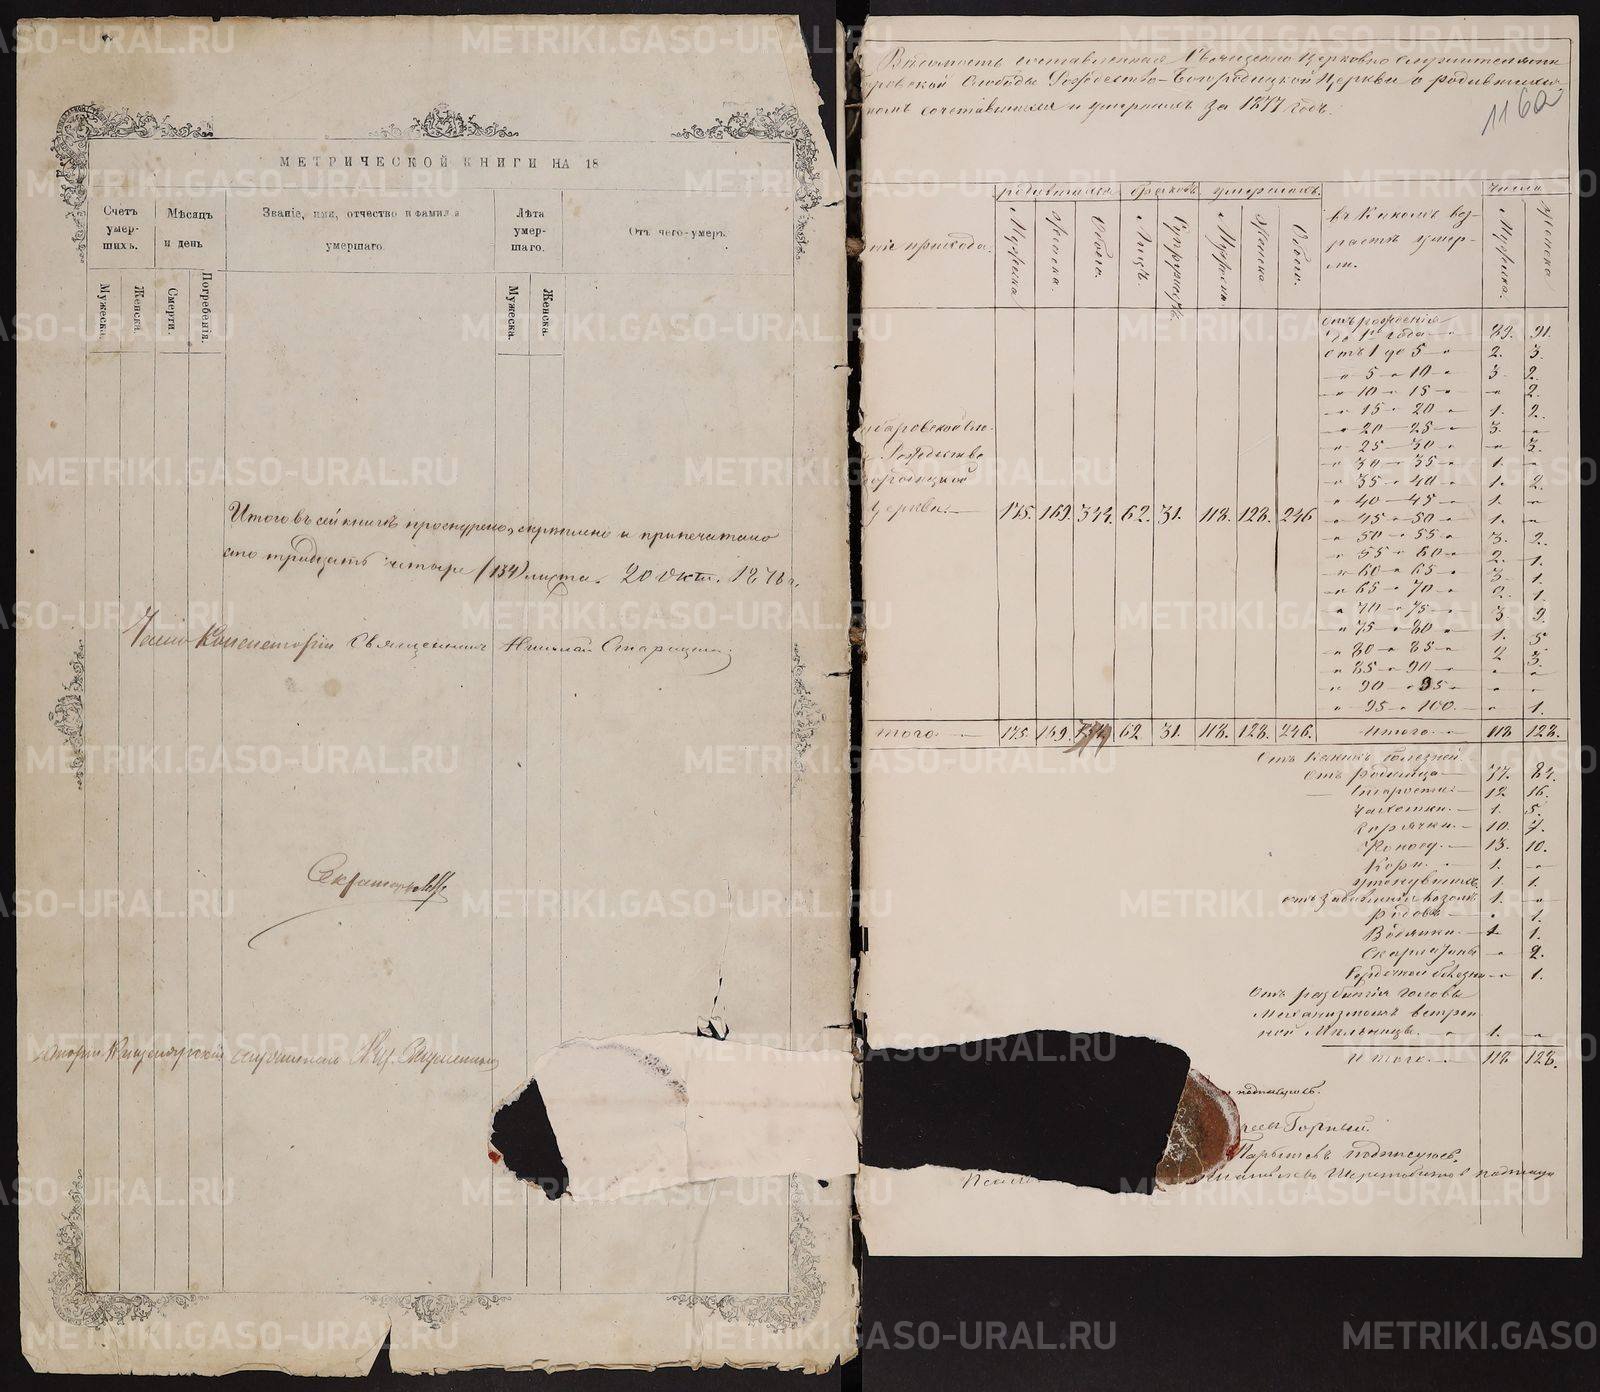 МЕТРИЧЕСКОЙ КНИГИ НА 18
Счетъ умер-шихъ.
Мѣсяцъ и день
Званіе, имя, отчество и фамилія умершаго.
Лѣта умер-шаго.
Отъ чего умеръ.
Мужеска.
Женска.
Смерти.
Погребенія.
Мужеска.
Женска.
Итого въ сей книгѣ прошнурено, скрѣплено и припечатано
сто тридцать четыре (134) листа. 20 Окт. 1876 г.
Членъ Консисторіи Священникъ Николай
Секретарь
Вѣдомость составленная Священно церковно служителями
Слободы Рождество-Богородицкой Церкви о родившихся
сочетавшихся и умершихъ за 1877 годъ.
116а
родившихся браковъ умершихъ. число
прихода.
Мужеска
Женска.
Обоего.
Лицъ.
Супружествъ.
Мужеска
Женска
Обоего.
въ какомъ воз-
растѣ умер-
ли.
Мужска.
Женска
отъ рожденія
до 1го года 89. 91.
отъ 1 до 5 " 2. 3.
" 5 " 10 " 3. 2.
" 10 " 15 " " 2.
" 15 " 20 " 1. 2.
" 20 " 25 " 3. "
" 25 " 30 " " 3.
" 30 " 35 " 1. "
" 35 " 40 " 1. 2.
" 40 " 45 " 1. "
" 45 " 50 " 1. "
" 50 " 55 " 3. 2.
" 55 " 60 " 2. 1.
" 60 " 65 " 3. 1.
" 65 " 70 " 2. 1.
" 70 " 75 " 3. 2.
" 75 " 80 " 1. 5
" 80 " 85 " 2 3.
" 85 " 90 " " "
" 90 " 95 " " "
" 95 " 100. " 1.
Рождество
Церкви. 175. 169. 344. 62. 31. 118. 128. 246
того 175 169. 344 62 31. 118. 128. 246. Итого. 118 128.
Отъ какихъ болѣзней
Отъ родимца 77. 84.
Старости 12 16.
Чахотки. 1. 5.
Горячки. 10. 7.
Поносу. 13. 10.
Кори. 1. "
утонувшихъ 1. 1.
1. "
Родовъ " 1.
Водянки. 1 1.
Скарлатины " 2.
Сердечной болѣзни " 1.
Отъ разбитія головы
механизмомъ вѣтрен-
ной Мѣльницы. 1. "
Итого. 118 128.
подписуюсь.
Горный.
подписуюсь.
Псалм
METRIKI.GASO-URAL.RU